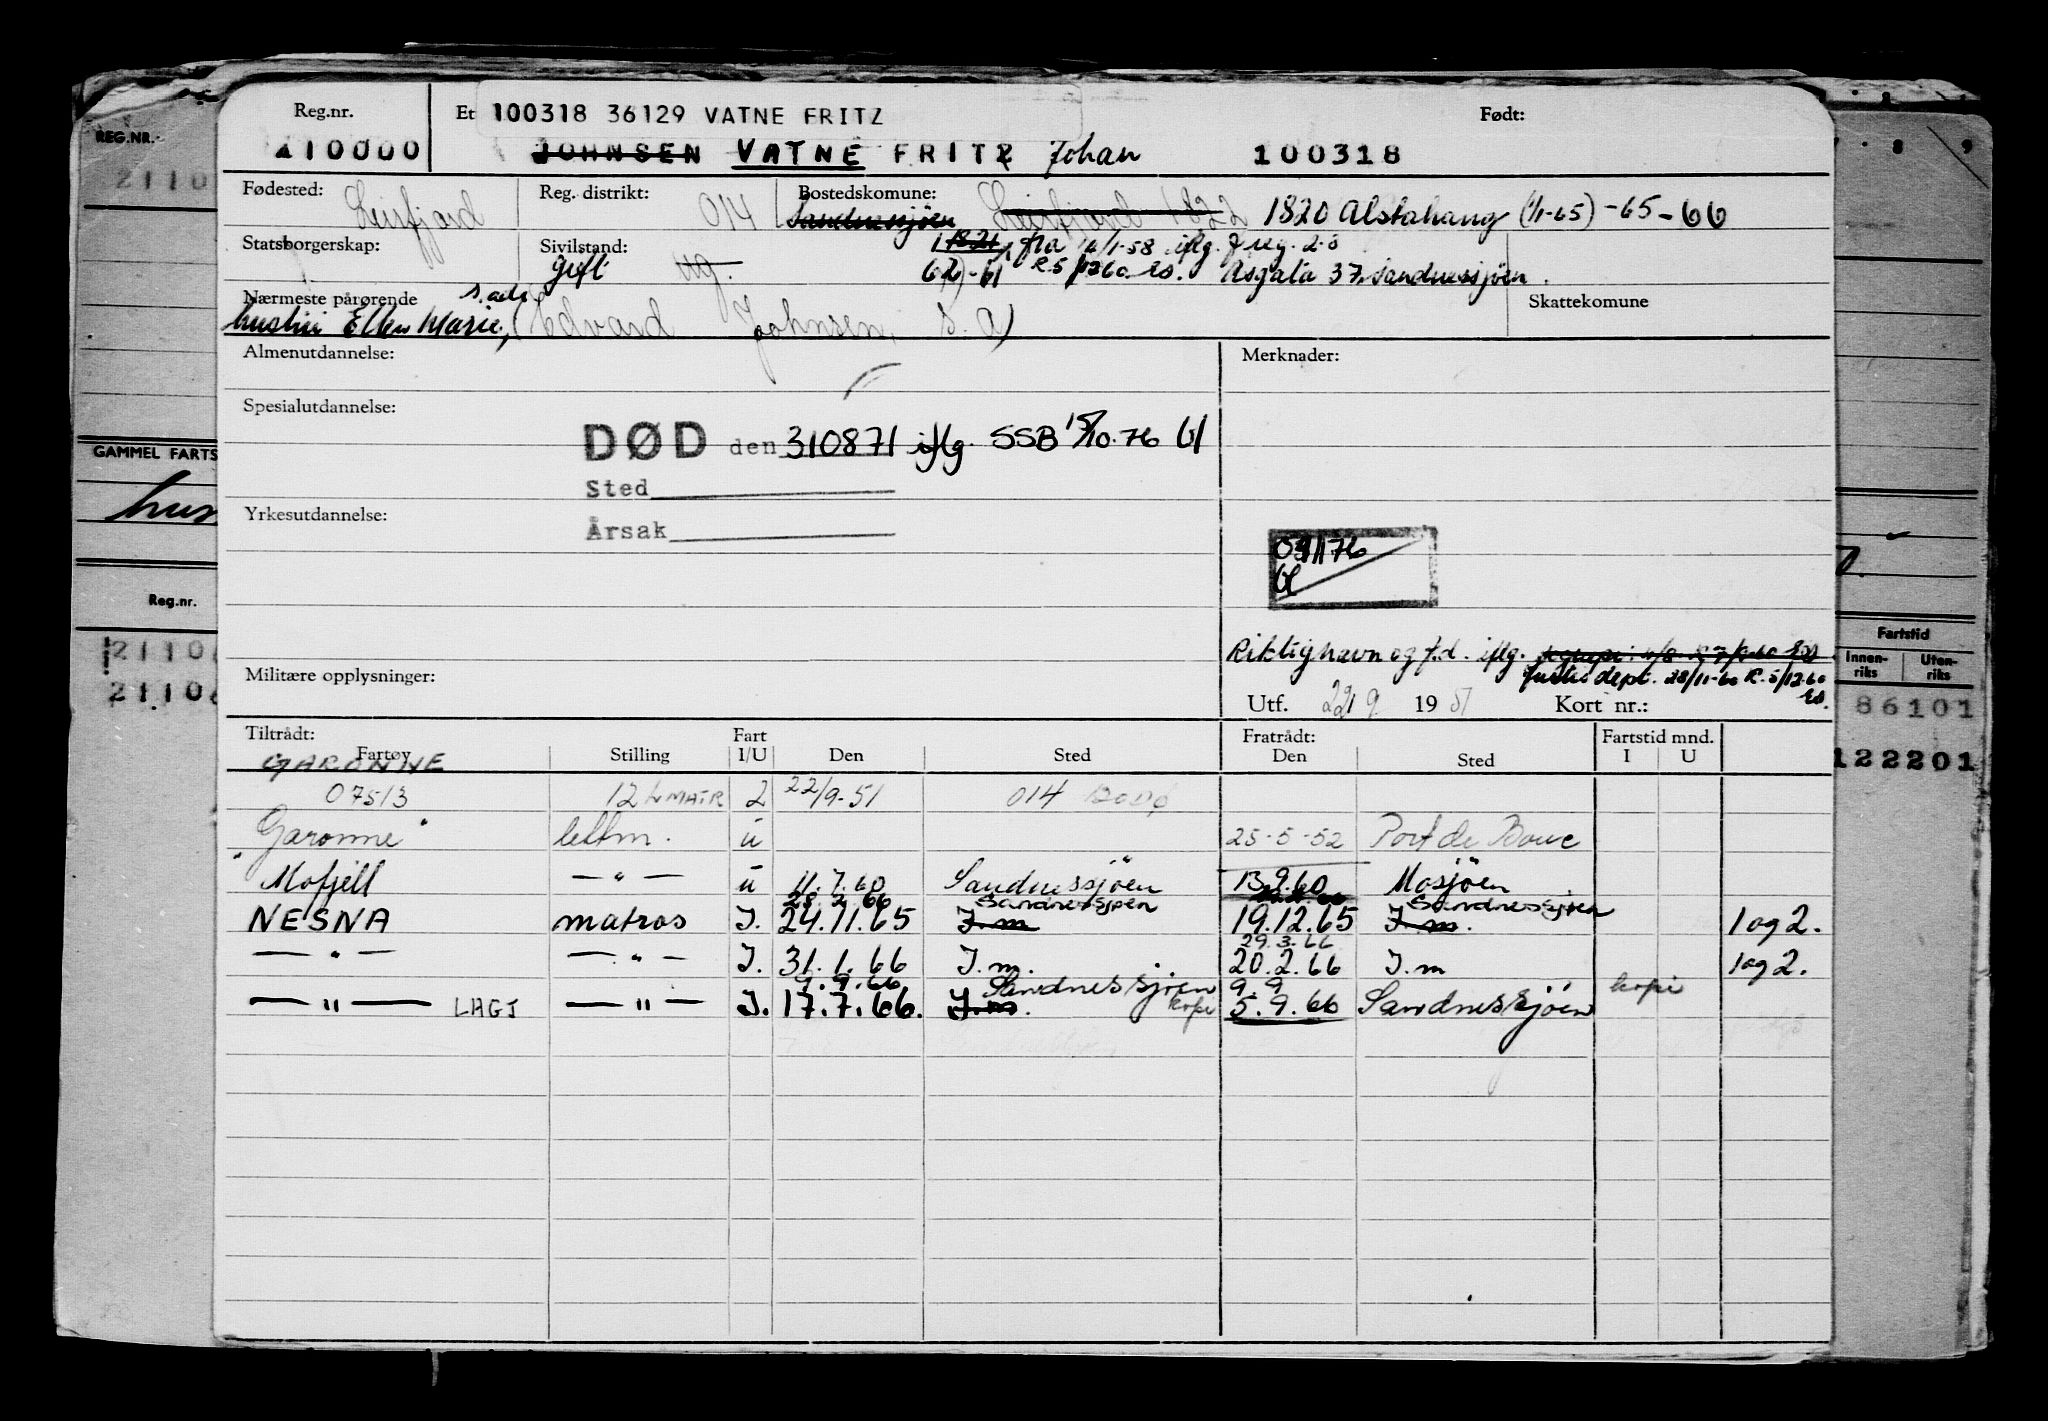 REG.NR.
2110
GAMMEL FARTS
Reg.nr.
2110
2110
Reg.nr.
Et 100318 36129 VATNE FRITZ
Født:
110000 JOHNSEN VATNE FRITZ Johan 100318
Fødested: Leirfjord Reg. distrikt: 014 Bostedskomune: Sandnessjöen Leirfjord 1822 1820 Alstahaug (1/1-65) -65-66
Statsborgerskap: Sivilstand: fra 1/1-58 iflg.
gift ug. 62)-61 R.5/1260 es. Asgata 37, Sandnessjöen.
Nærmeste pårørende s.adr. Skattekomune
hustru Ellen Marie, (Edvard Johnsen, s.a)
Almenutdannelse: Merknader:
Spesialutdannelse:
DØD den 310871 iflg. SSB 15/10.76
Sted
Yrkesutdannelse:
Årsak
Riktig navn og f.d. iflg.
Justisdept. 28/11-60 R.5/12.60
es.
Militære opplysninger:
Utf. 22/9 1951 Kort nr.:
Tiltrådt: Fart Fratrådt: Fartstid mnd.
Fartøy Stilling I/U Den Sted Den Sted I U
GARONNE
07513 12 L MATR 2 22/9-51 014 BODØ
"Garonne" lettm. u 25-5-52 Port de Bouc
Mofjell — " — u 11.7.60 Sandnessjöen 13.9.60 Mosjöen
28.2.66 Sandnessjøen Sandnessjøen
NESNA matros I. 24.11.65 I.m 19.12.65 I.m. 1 og 2.
29.3.66
— " — — " — I. 31.1.66 I.m. 20.2.66 I.m 1 og 2.
9.9.66 Sandnessjøen 9.9 kopi
— " — LAGJ — " — I. 17.7.66. I.m. kopi 5.9.66 Sandnessjöen
7 . 8 9
Fartstid
Innen-
riks
Uten-
riks
86101
122201